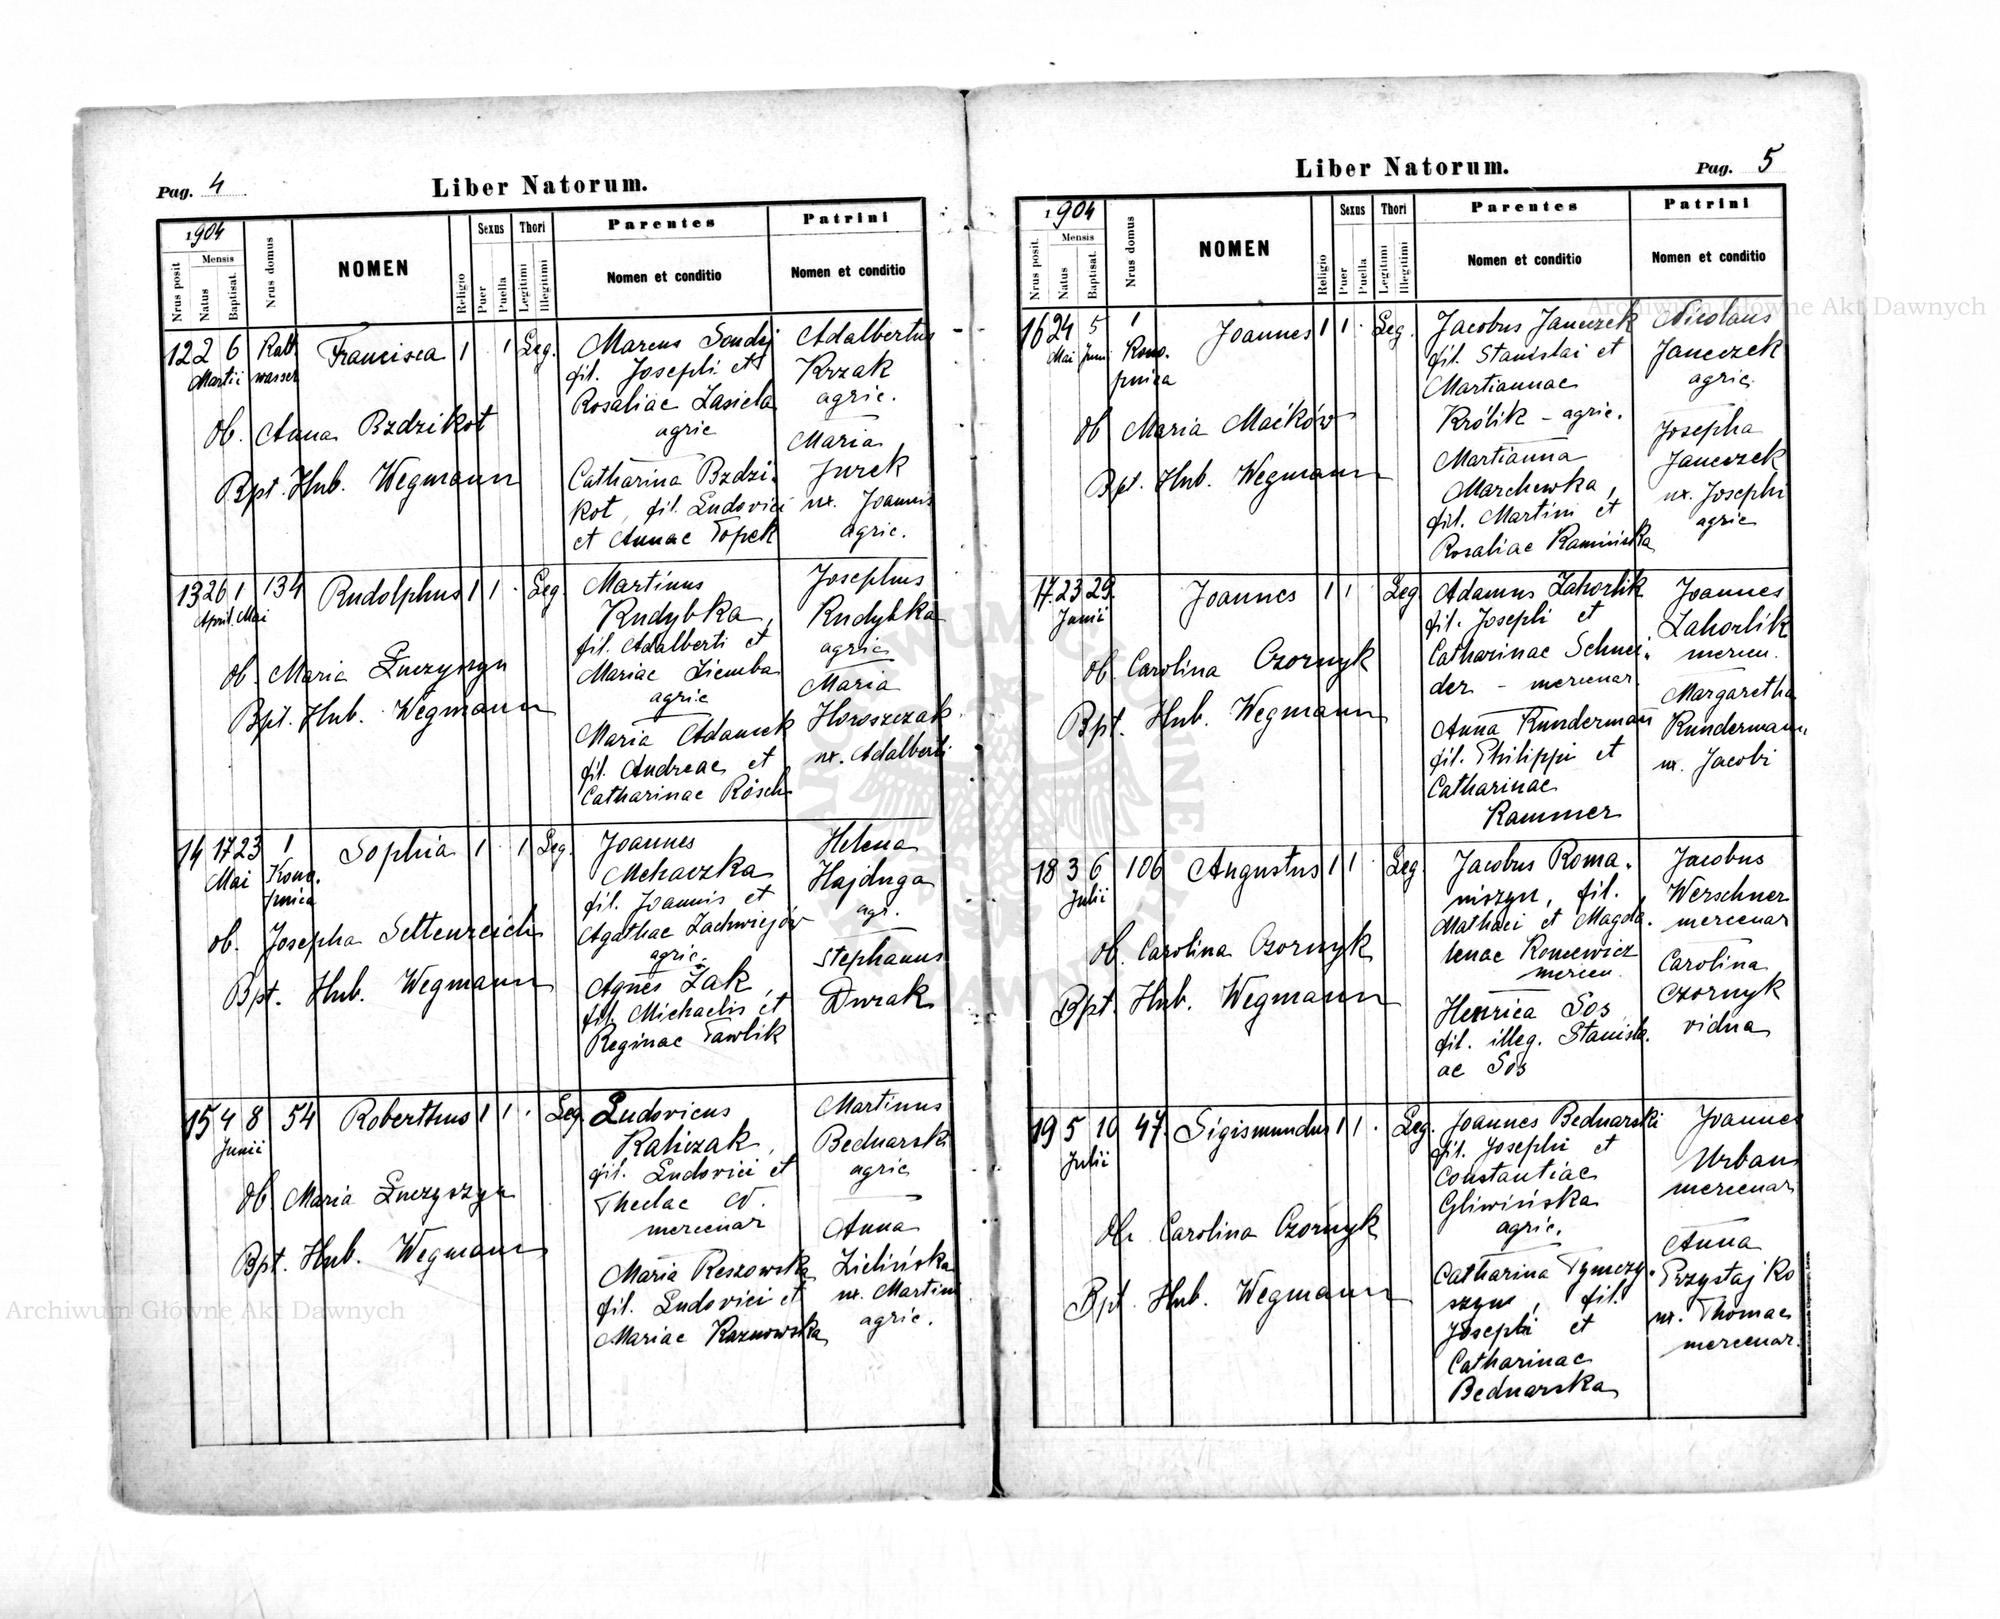 Pag. 4
Liber Natorum.
1904
Mensis
Nrus posit.
Natus
Baptisat.
Nrus domus
NOMEN
Religio
Sexus
Puer
Puella
Thori
Legitimi
Illegitimi
Parentes
Nomen et conditio
Patrini
Nomen et conditio
12 2 6 Kalt Francisca 1 1 Leg.
Martii wasser
Ob. Anna Bzdzikot
Bpt. Hub. Wegmann
Marcus Sondej
fil. Josephi et
Rosaliae Lasiela
agric
Catharina Bzdzi-
kot, fil. Ludovici
et Annae Topek
Adalbertus
Krzak
agric.
Maria
Jurek
ux. Joannis
agric.
13 26 1 134 Rudolphus 1 1 . Leg.
April. Mai
Ob. Maria Łuczyszyn
Bpt. Hub. Wegmann
Martinus
Rudybka,
fil. Adalberti et
Mariae Ziemba
agric
Maria Adamek
fil. Andreae et
Catharinae Rösch
Josephus
Rudybka
agric
Maria
Horoszczak
ux. Adalberti
14 17 23 1 Sophia 1 1 Leg.
Mai Kono-
pnica
ob. Josepha Settenreich
Bpt. Hub. Wegmann
Joannes
fil. Joannis et
Agathae Zachwiejów
agric.
Agnes Żak,
fil. Michaelis et
Reginae Pawlik
Helena
Hajduga
agr.
Stephanus
Durak
15 4 8 54 Roberthus 1 1 . Leg.
Junii
Ob. Maria Łuczyszyn
Bpt. Hub. Wegmann
Ludovicus
Kaliczak,
fil. Ludovici et
Theclae N.
mercenar
Maria Reszowska
fil. Ludovici et
Mariae Kaznowska
Martinus
Bednarski
agric
Anna
Zielińska
ux. Martini
agric.
Liber Natorum.
Pag. 5
1904
Mensis
Nrus posit.
Natus
Baptisat.
Nrus domus
NOMEN
Religio
Sexus
Puer
Puella
Thori
Legitimi
Illegitimi
Parentes
Nomen et conditio
Patrini
Nomen et conditio
16 24 5 1 Joannes 1 1 . Leg.
Mai Juni Kono-
pnica
Ob Maria Maćków
Bpt. Hub. Wegmann
Jacobus Janczek
fil. Stanislai et
Martiannae
Królik - agric.
Martianna
Marchewka,
fil. Martini et
Rosaliae Kamińska
Nicolaus
Janczek
agric.
Josepha
Janczek
ux. Josephi
agric
17. 23 29. Joannes 1 1 . Leg
Junii
Ob. Carolina Czornyk
Bpt. Hub. Wegmann
Adamus Zahorlik
fil. Josephi et
Catharinae Schnei-
der - mercenar.
Anna Kundermann
fil. Philippi et
Catharinae
Kammer
Joannes
Zahorlik
mercen.
Margaretha
Kundermann
ux. Jacobi
18 3 6 106 Augustus 1 1 . Leg
Julii
Ob. Carolina Czornyk
Bpt. Hub. Wegmann
Jacobus Roma-
niszyn, fil.
Mathaei et Magda-
lenae Koniewicz
mercen.
Henrica Sos
fil. illeg. Stanisla-
ae Sos
Jacobus
Werschner
mercenar
Carolina
Czornyk
vidua
19 5 10 47. Sigismundus 1 1 . Leg.
Julii
Ob. Carolina Czornyk
Bpt. Hub. Wegmann
Joannes Bednarski
fil. Josephi et
Constantiae
Gliwińska
agric.
Catharina Tymczy-
szyn, fil.
Josephi et
Catharinae
Bednarska
Joannes
Urban
mercenar
Anna
Przystajko
ux. Thomae
mercenar.
Archiwum Główne Akt Dawnych
Archiwum Główne Akt Dawnych